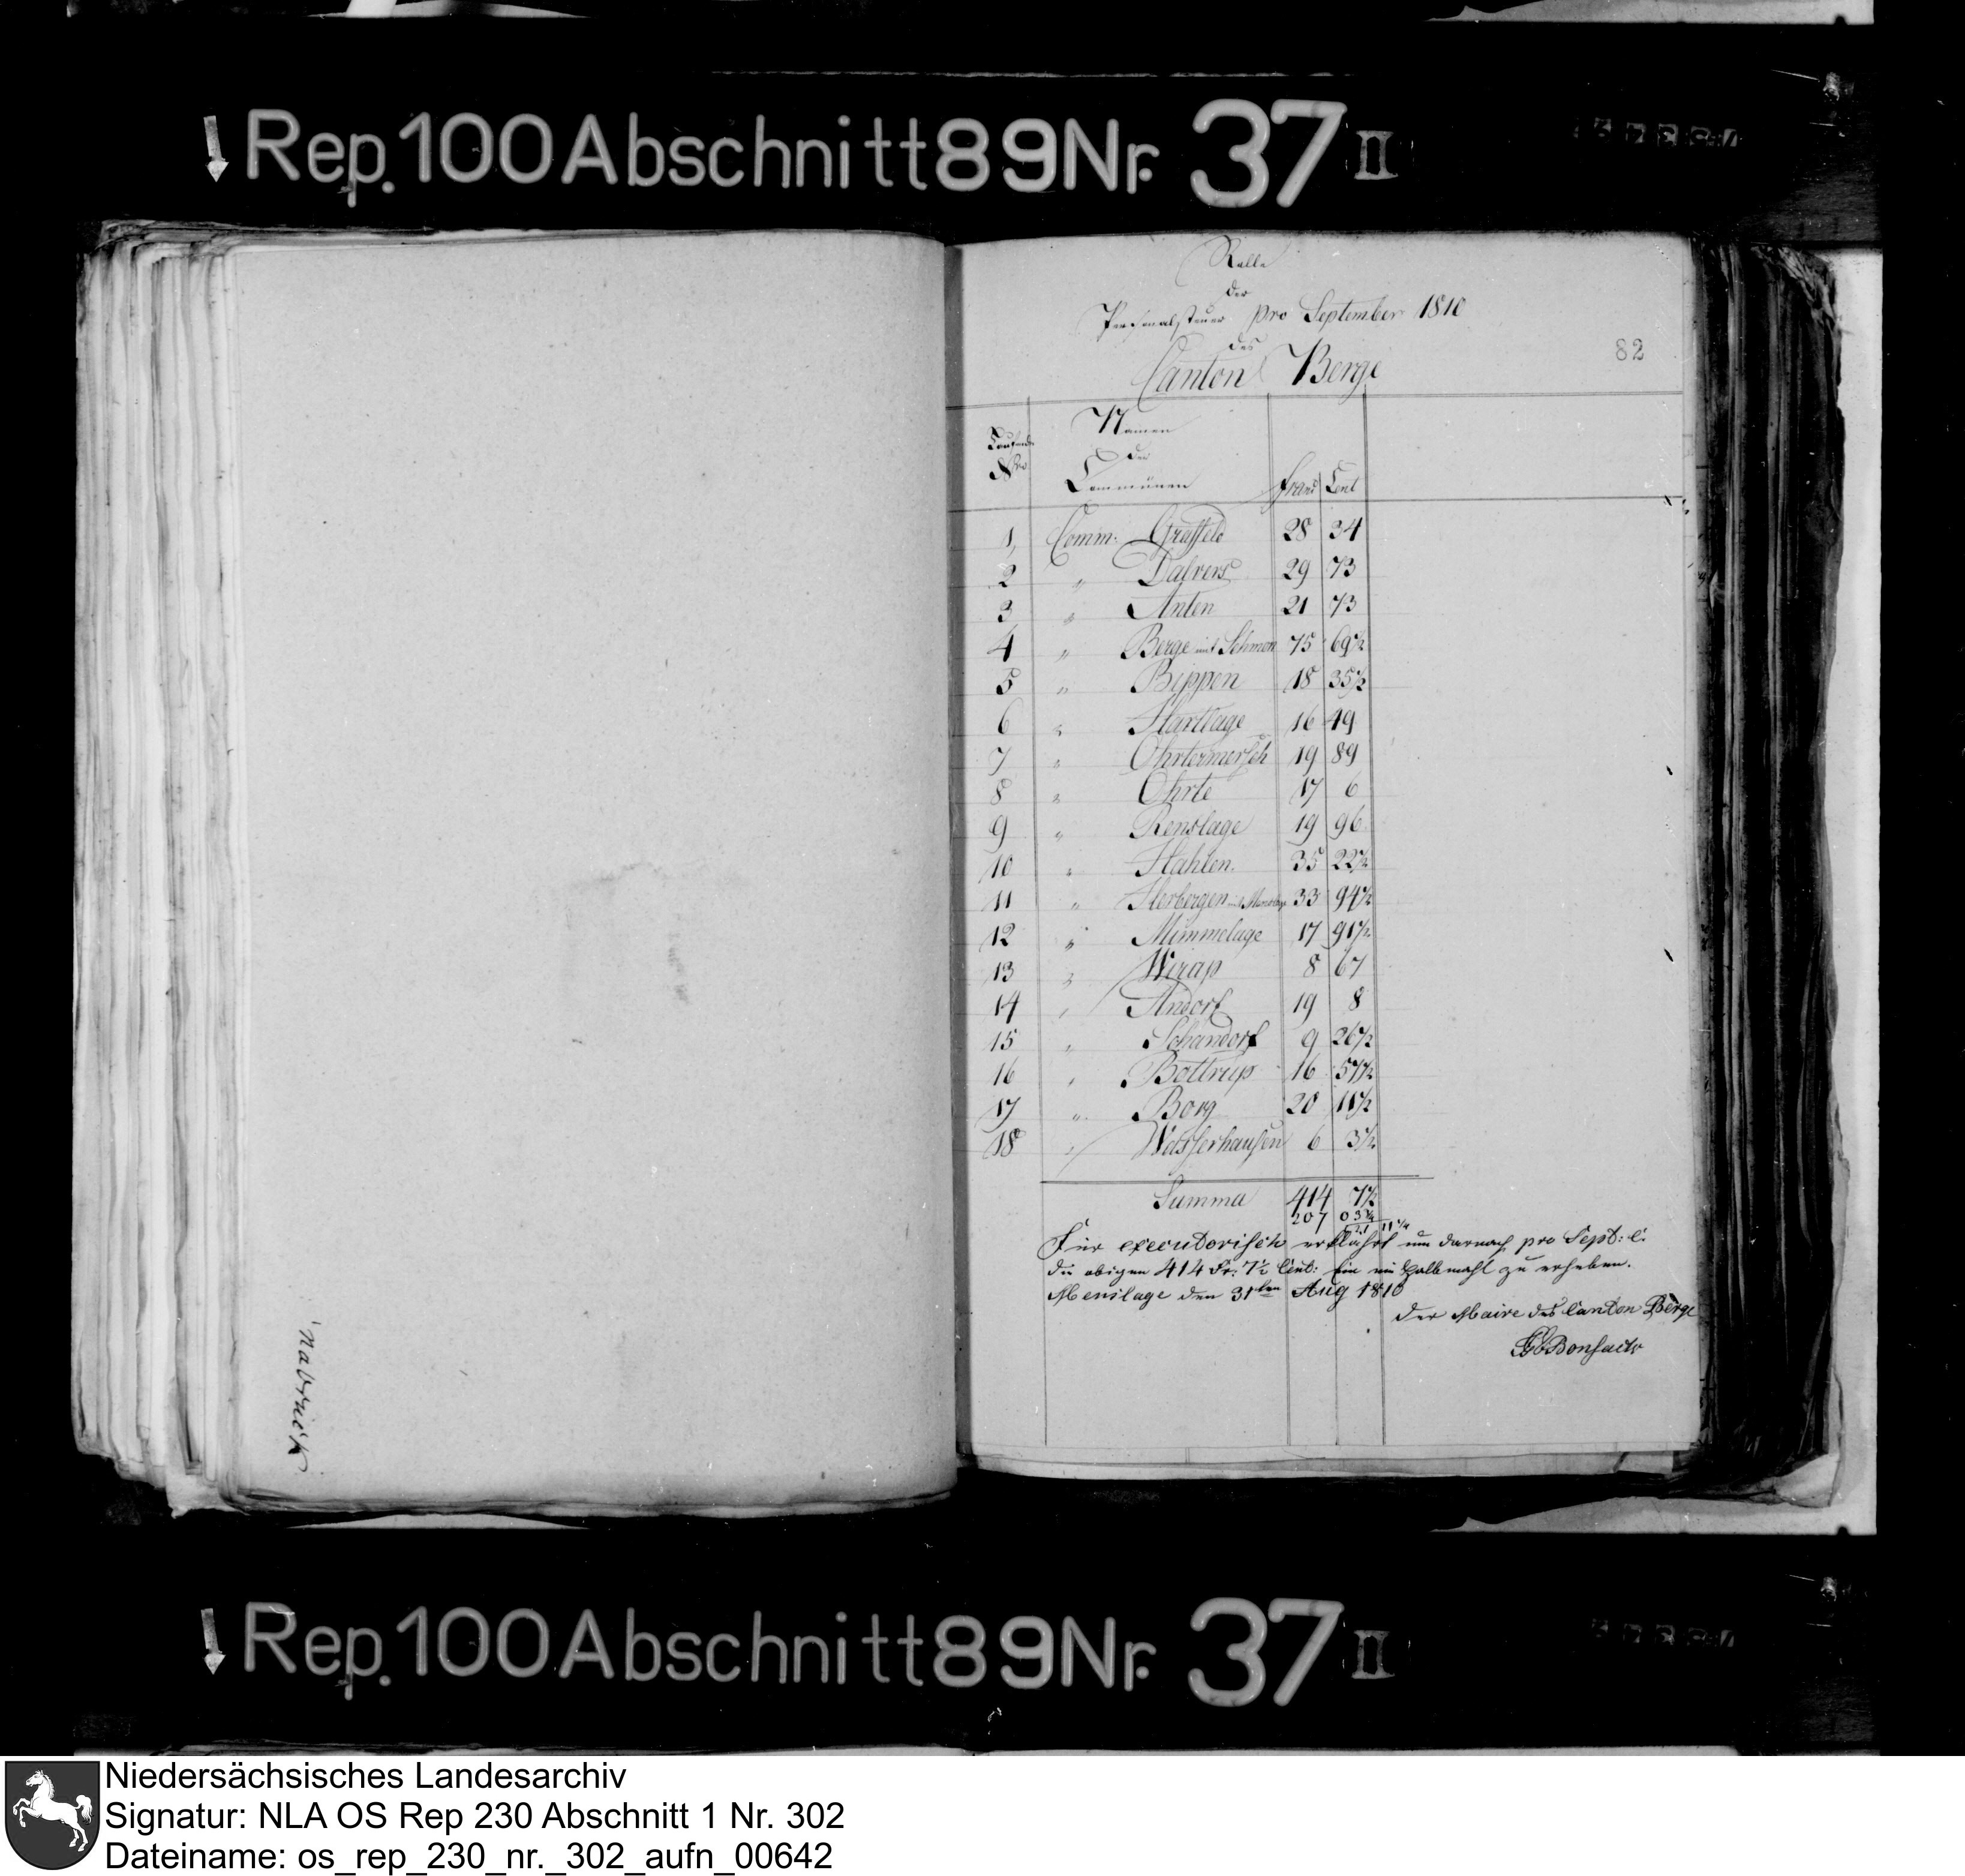 Rep. 100 Abschnitt 89 Nr. 37 II
Rolle
der
Personalsteuer pro September 1810
des
Canton Berge
82
Laufende
Nro
Namen
der
Communen
Franc
Cent
1, Comm: Graffeld 28 34
2 " Dalvers 29 73
3 " Anten 21 73
4 " Berge mit Schmon 75 69½
5 " Bippen 18 35½
6 " Hartlage 16 49
7 " Ohrtermersch 19 89
8 " Ohrte 17 6
9 " Renslage 19 96
10 " Hahlen. 35 22½
11 " Herbergen 33 94½
12 " Mimmelage 17 91½
13 " Wirap 8 67
14 " Andorf 19 8
15 " Schandorf 9 26½
16 " Bottrup 16 57½
17 " Borg 20 11½
18 " Wasserhausen 6 3½
Summa 414 7½
207 03¾
Für executorisch erklährt um darnach pro Sept: c.
die obigen 414 Fr: 7½ Cent: ein ein halbmahl zu erheben.
Menslage den 31ten Aug 1810
Der Maire des Canton Berge
nabrück
Rep. 100 Abschnitt 89 Nr. 37 II
Niedersächsisches Landesarchiv
Signatur: NLA OS Rep 230 Abschnitt 1 Nr. 302
Dateiname: os_rep_230_nr._302_aufn_00642